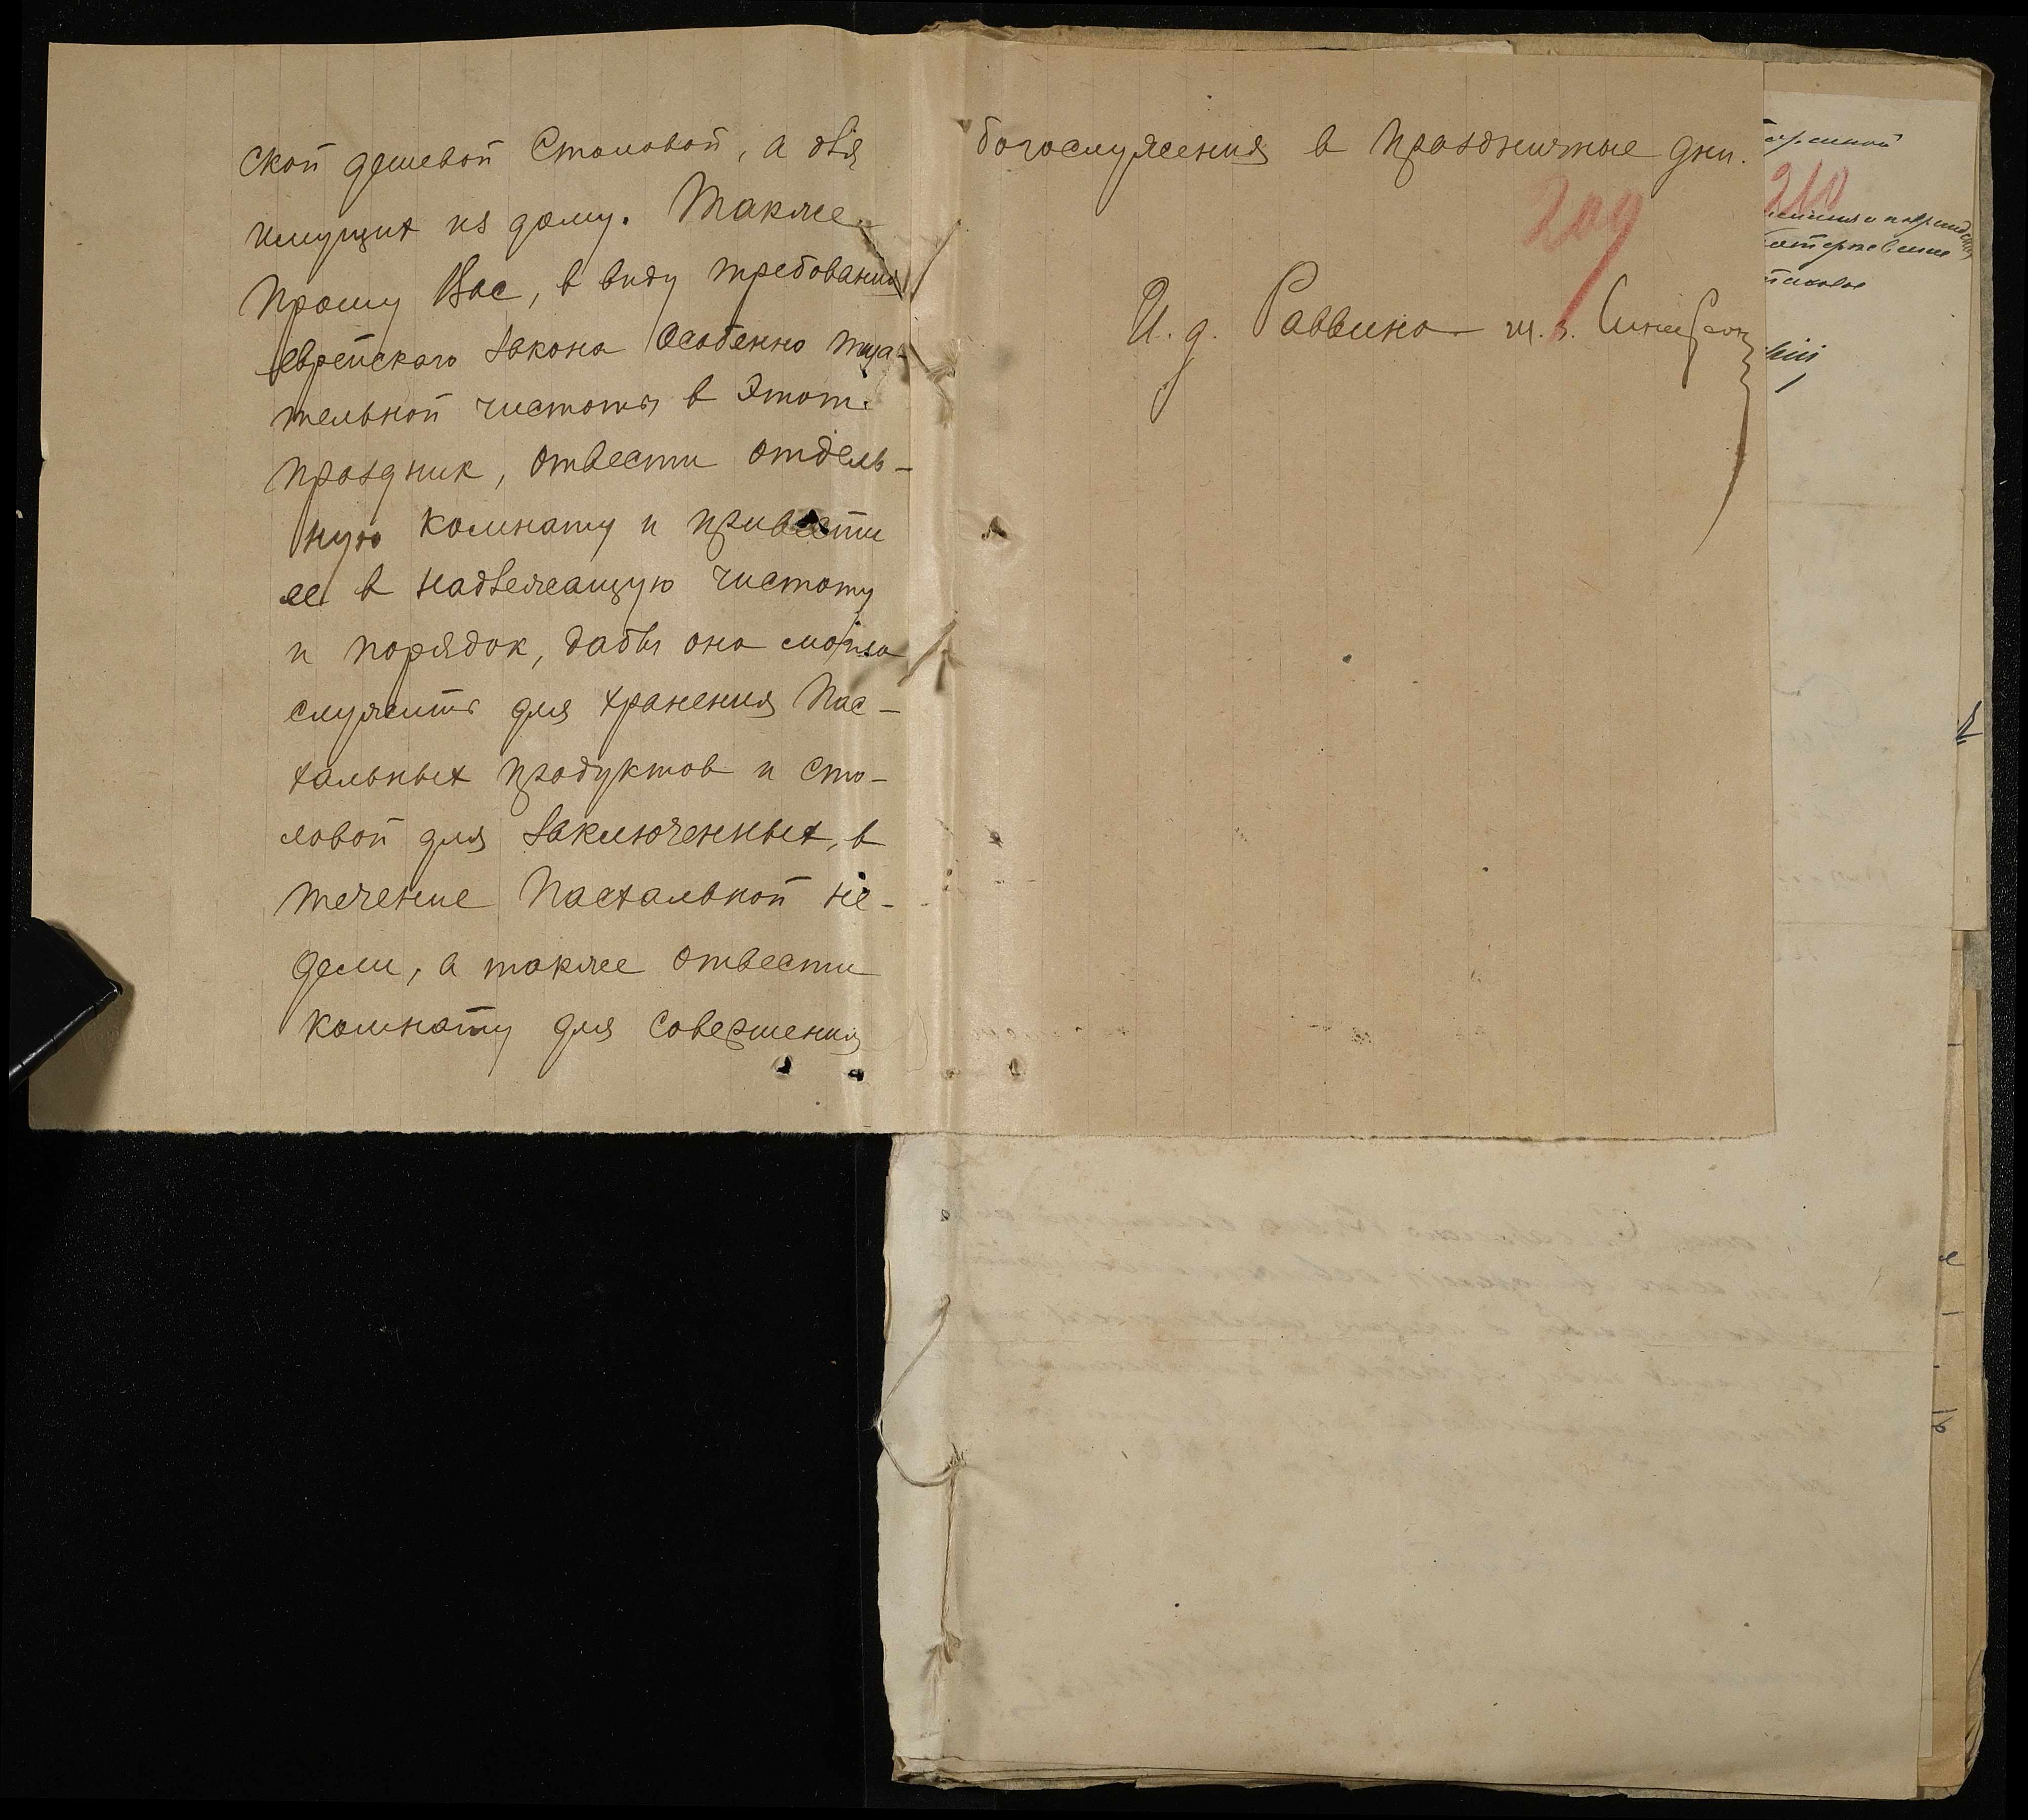 ской дешевой столовой, а для
имущих из дому. Также
прошу Вас, в виду требования
еврейского закона особенно тща-
тельной чистоты в этот
праздник, отвести отдель-
ную комнату и привести
ее в надлежащую чистоту
и порядок, дабы она могла
служить для хранения пас-
хальных продуктов и сто-
ловой для заключенных, в
течение пасхальной не-
дели, а также отвести
комнату для совершения
богослужения в праздничные дни.
209
И. д. Раввина
210